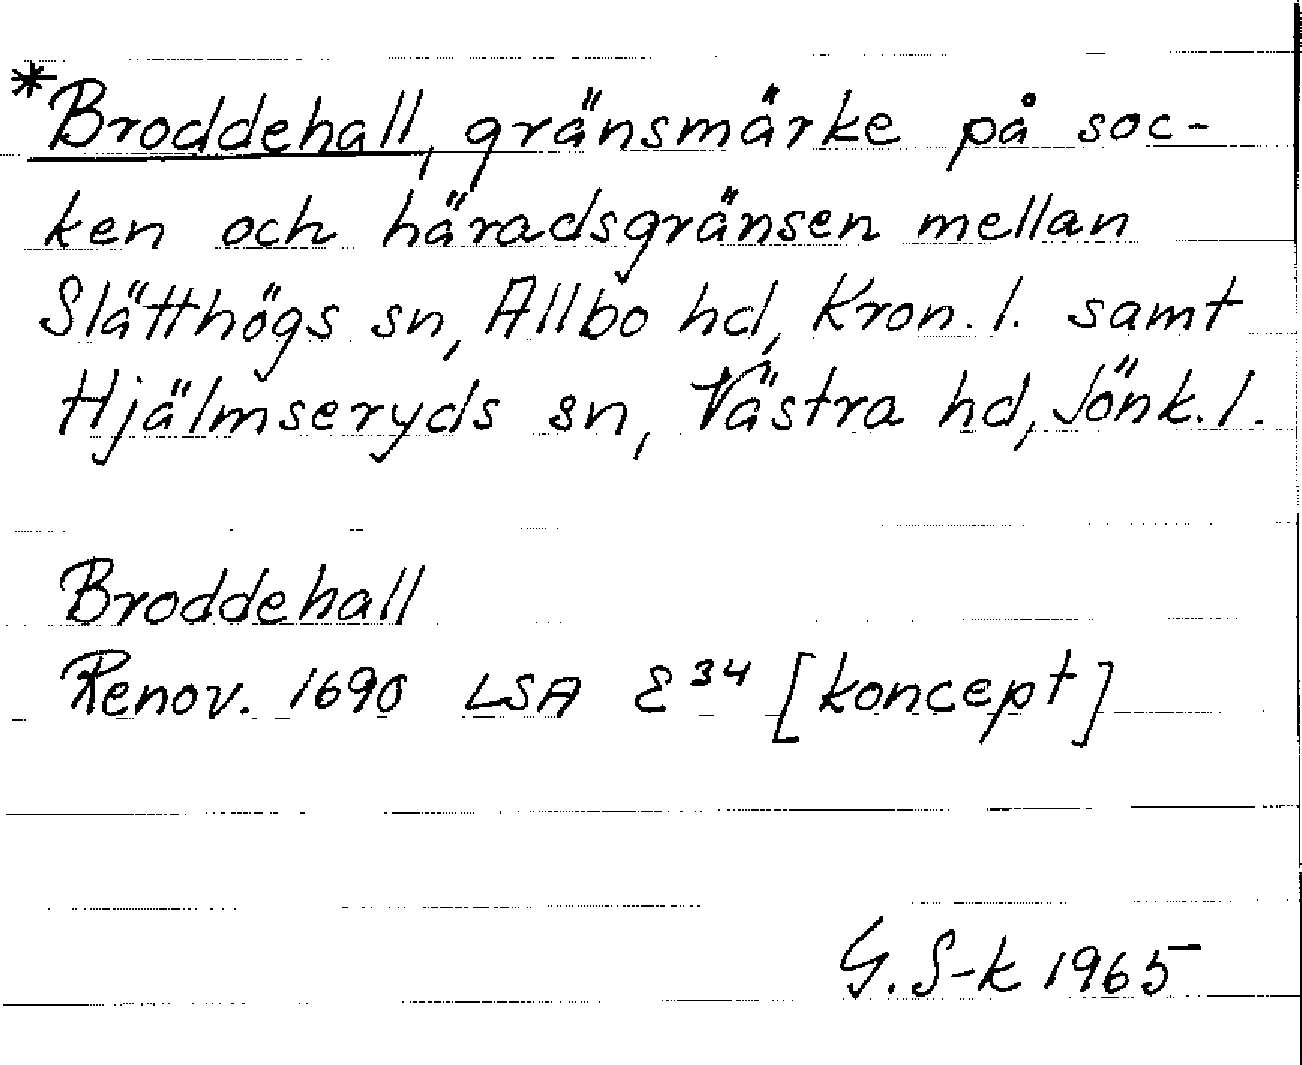 *Broddehall, gränsmärke på soc-
ken och häradsgränsen mellan
Slätthögs sn, Allbo hd, Kron. l. samt
Hjälmseryds sn, Västra hd, Jönk. l.
Broddehall
Renov. 1690 LSA E³⁴ [koncept]
G. S-k 1965